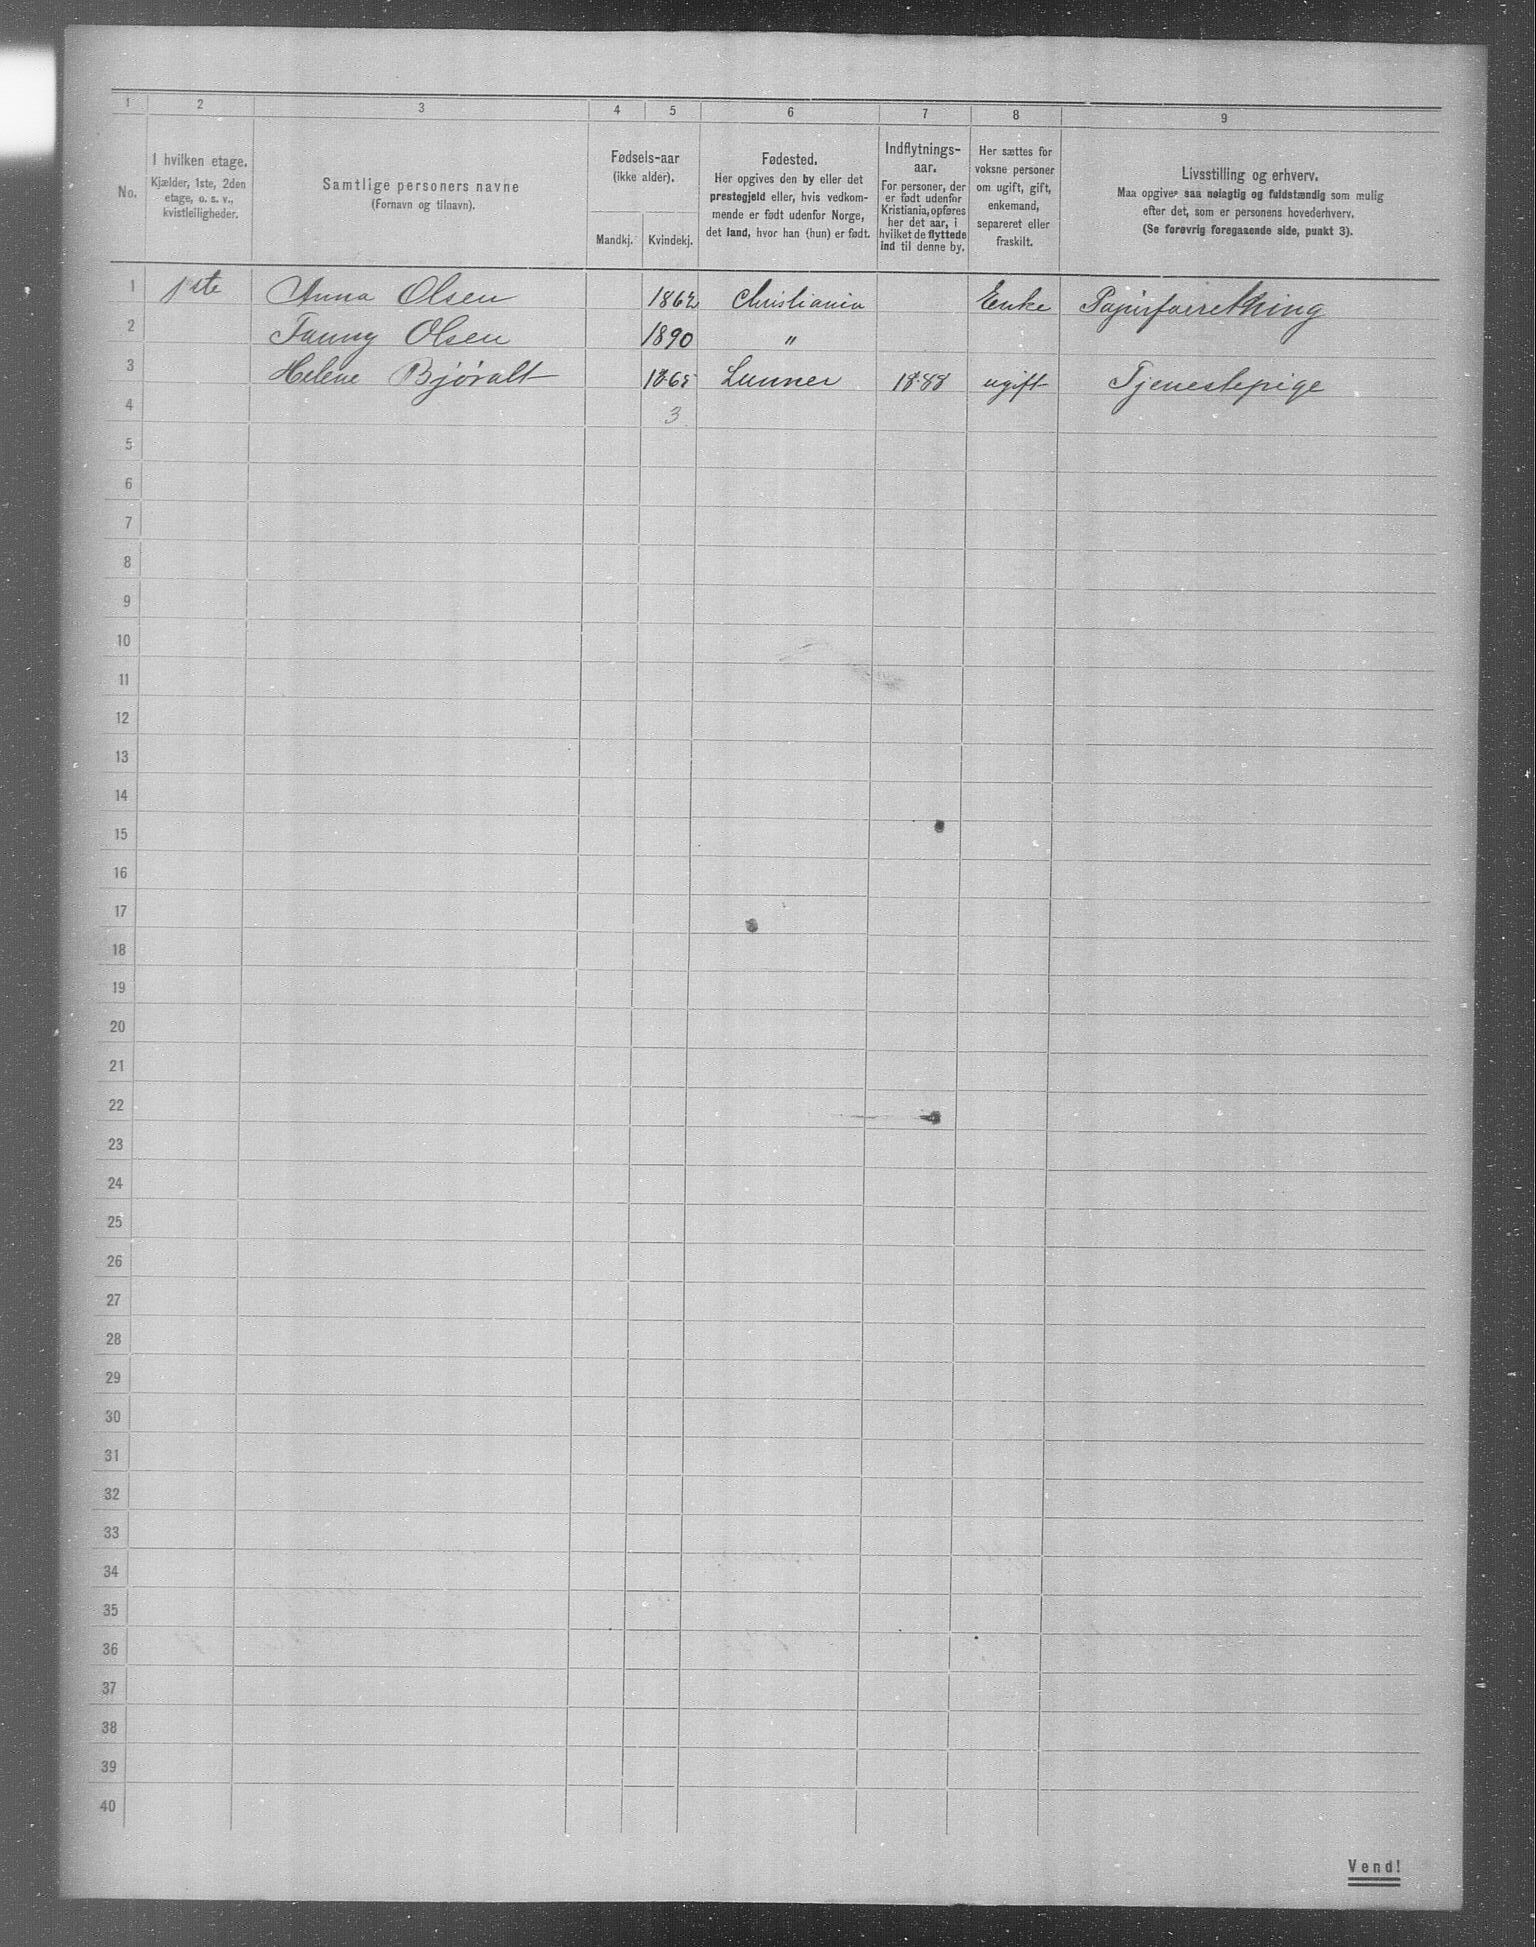 1 2 3 4 5 6 7 8 9
No.
I hvilken etage.
Kjælder, 1ste, 2den
etage, o. s. v.,
kvistleiligheder.
Samtlige personers navne
(Fornavn og tilnavn).
Fødsels-aar
(ikke alder).
Mandkj. Kvindekj.
Fødested.
Her opgives den by eller det
prestegjeld eller, hvis vedkom-
mende er født udenfor Norge,
det land, hvor han (hun) er født.
Indflytnings-
aar.
For personer, der
er født udenfor
Kristiania, opføres
her det aar, i
hvilket de flyttede
ind til denne by.
Her sættes for
voksne personer
om ugift, gift,
enkemand,
separeret eller
fraskilt.
Livsstilling og erhverv.
Maa opgives saa nøiagtig og fuldstændig som mulig
efter det, som er personens hovederhverv.
(Se forøvrig foregaaende side, punkt 3).
1 1ste Anna Olsen 1862 Christiania Enke Papirforretning
2 Fanny Olsen 1890 "
3 Helene Bjøralt 1865 Lunner 1888 ugift Tjenestepige
4 3
5
6
7
8
9
10
11
12
13
14
15
16
17
18
19
20
21
22
23
24
25
26
27
28
29
30
31
32
33
34
35
36
37
38
39
40
Vend!